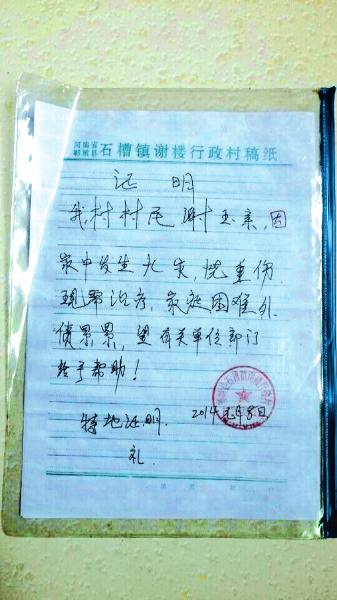 河南省
郸城县 石槽镇谢楼行政村稿纸
证明
我村村民谢玉亲,因
家中发生火灾,烧重伤.
现需治疗,家庭困难外
债累累,望有关单位部门
给予帮助!
特地证明.
2014年月8日
礼.